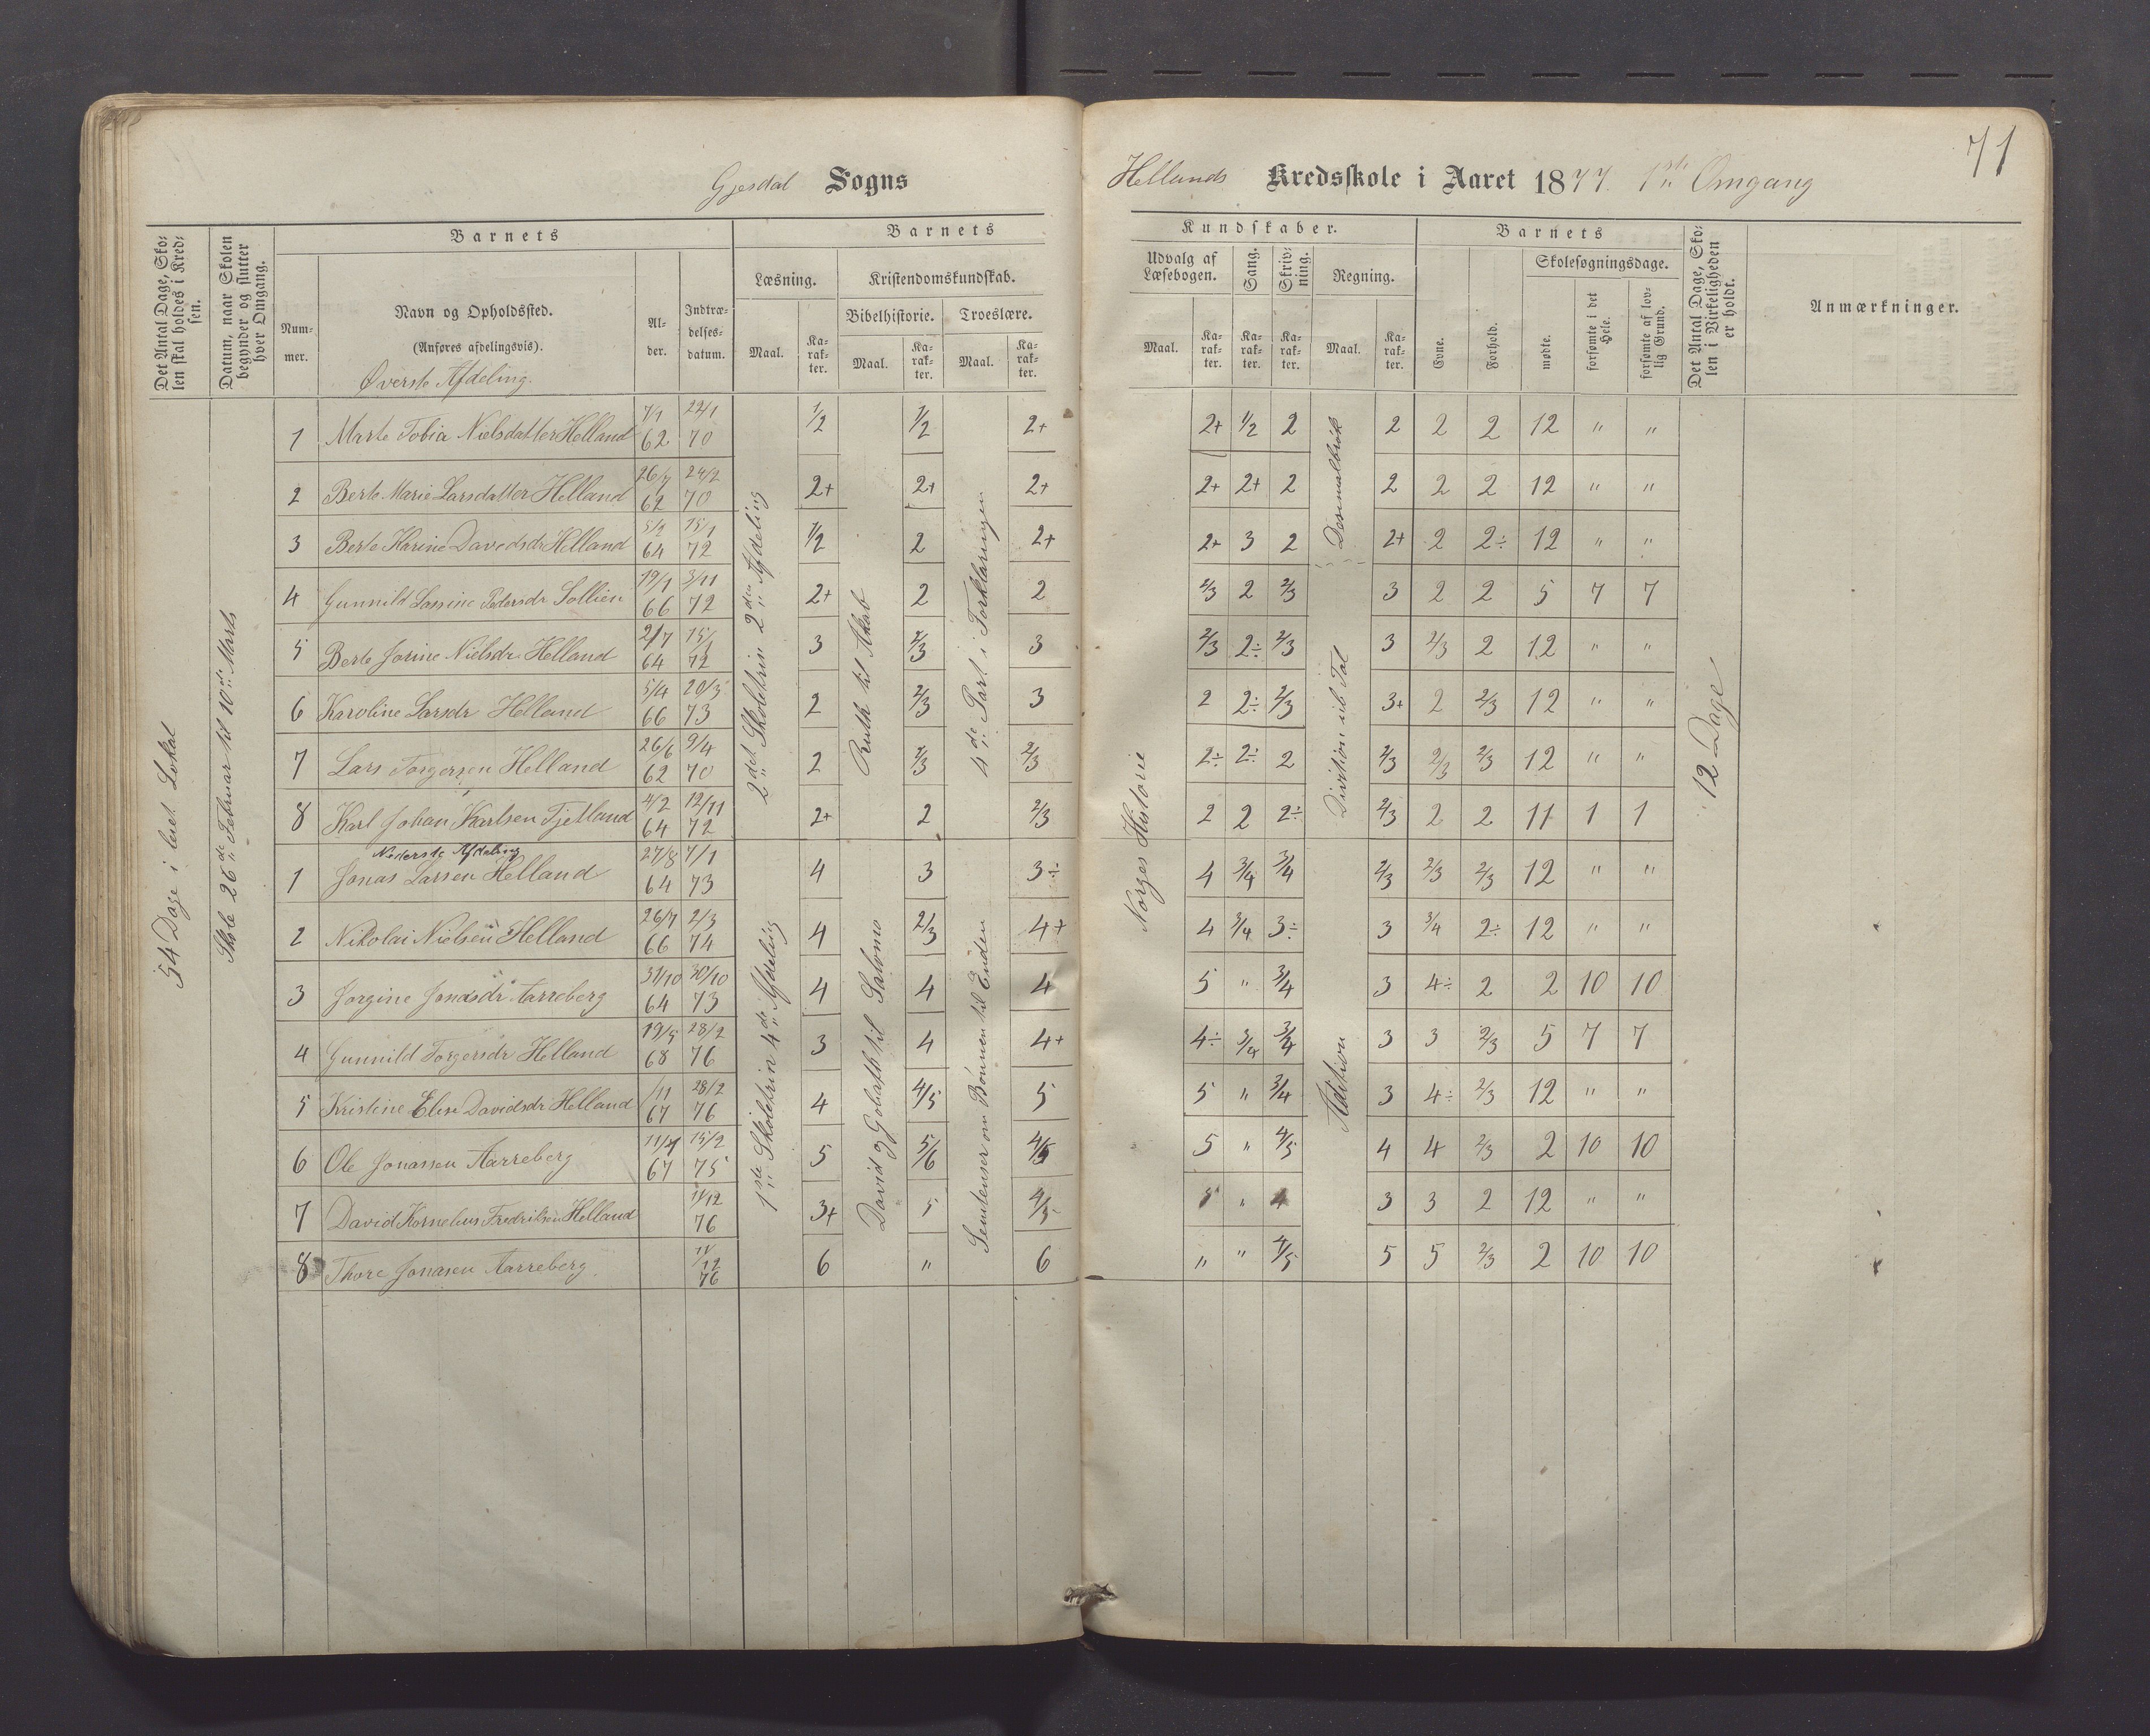 71
Gjesdal Sogns
Hellands Kredsskole i Aaret 1877. 1ste Omgang
Det Antal Dage, Skolen skal holdes i Kredsen.
Datum, naar Skolen begynder og slutter hver Omgang.
Barnets
Nummer.
Navn og Opholdssted.
(Anføres afdelingsvis).
Øverste Afdeling.
Alder.
Indtrædelsesdatum.
Barnets
Læsning.
Maal.
Karakter.
Kristendomskundskab.
Bibelhistorie.
Maal.
Karakter.
Troeslære.
Maal.
Karakter.
Kundskaber.
Udvalg af Læsebogen.
Maal.
Karakter.
Sang.
Karakter.
Skrivning.
Karakter.
Regning.
Maal.
Karakter.
Barnets
Evne.
Forhold.
Skolesøgningsdage.
mødte.
forsømte i det Hele.
forsømte af lovlig Grund.
Det Antal Dage, Skolen i Virkeligheden er holdt.
Anmærkninger.
54 Dage i leiet Lokal
Skole 26de Februar til 10de Marts
2det Skoletrin 2den Afdeling
Ruth til Akab
4de Part i Forklaringen
Norges Historie
Desimalbrøk
Division i Tal
12 Dage
1 Marte Tobia Nielsdatter Helland 7/1 62 22/1 70 1/2 1/2 2+ 2+ 1/2 2 2 2 2 12 " "
2 Berte Marie Larsdatter Helland 26/7 62 24/2 70 2+ 2+ 2+ 2+ 2+ 2 2 2 2 12 " "
3 Berte Karine Davidsdr Helland 5/2 64 15/1 72 1/2 2 2+ 2+ 3 2 2+ 2 2÷ 12 " "
4 Gunnild Lassine Pedersdr Sollien 19/1 66 3/11 72 2+ 2 2 2/3 2 2/3 3 2 2 5 7 7
5 Berte Jorine Nielsdr Helland 2/7 64 15/1 72 3 2/3 3 2/3 2÷ 2/3 3 2/3 2 12 " "
6 Karoline Larsdr Helland 5/4 66 20/3 73 2 2/3 3 2 2÷ 2/3 3+ 2 2/3 12 " "
7 Lars Torgersen Helland 26/6 62 9/4 70 2 2/3 2/3 2÷ 2÷ 2 2/3 2/3 2/3 12 " "
8 Karl Johan Karlsen Fjetland 4/2 64 12/11 72 2+ 2 2/3 2 2 2÷ 2/3 2 2 11 1 1
Nederste Afdeling
1ste Skoletrin 4de Afdeling
David og Goliath til Salomo
Sentenser om Bønnen til Enden
Adition
1 Jonas Larsen Helland 27/8 64 7/1 73 4 3 3÷ 4 3/4 3/4 2/3 2/3 2/3 12 " "
2 Nikolai Nielsen Helland 26/7 66 2/3 74 4 2/3 4+ 4 3/4 3÷ 3 3/4 2÷ 12 " "
3 Jorgine Jonasdr Aarreberg 31/10 64 30/10 73 4 4 4 5 " 3/4 3 4÷ 2 2 10 10
4 Gunnild Torgersdr Helland 19/5 68 28/2 76 3 4 4+ 4÷ 3/4 3/4 3 3 2/3 5 7 7
5 Kristine Elen Davidsdr Helland /11 67 28/2 76 4 4/5 5 5 " 3/4 3 4÷ 2/3 12 " "
6 Ole Jonassen Aarreberg 11/4 67 15/2 75 5 5/6 4/5 5 " 4/5 4 4 2/3 2 10 10
7 David Kornelius Fredriksen Helland 11/12 76 3+ 5 4/5 5 " 4 3 3 2 12 " "
8 Thore Jonasen Aarreberg 11/12 76 6 " 6 " " 4/5 5 5 2/3 2 10 10